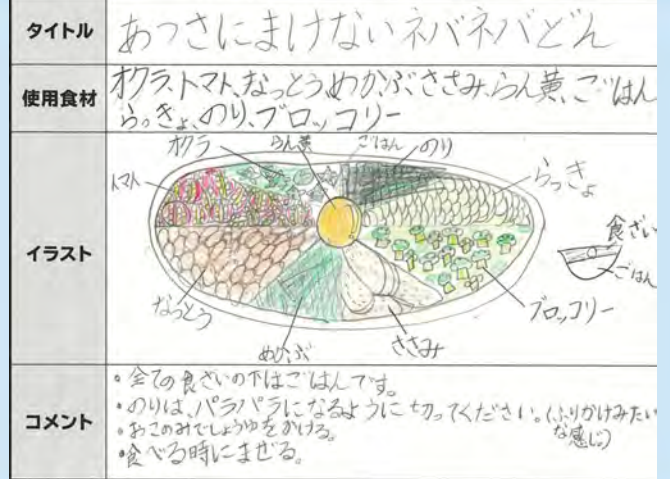 タイトル
あつさにまけないネバネバどん
使用食材
オクラ、トマト、なっとう、めかぶ、ささみ、らん黄、ごはん
らっきょ、のり、ブロッコリー
イラスト
オクラ
らん黄
ごはん
のり
トマト
らっきょ
食ざい
ごはん
なっとう
めかぶ
ささみ
ブロッコリー
コメント
・全ての食ざいの下はごはんです。
・のりは、パラパラになるように切ってください。(ふりかけみたい
な感じ)
・おこのみでしょうゆをかける。
・食べる時にまぜる。